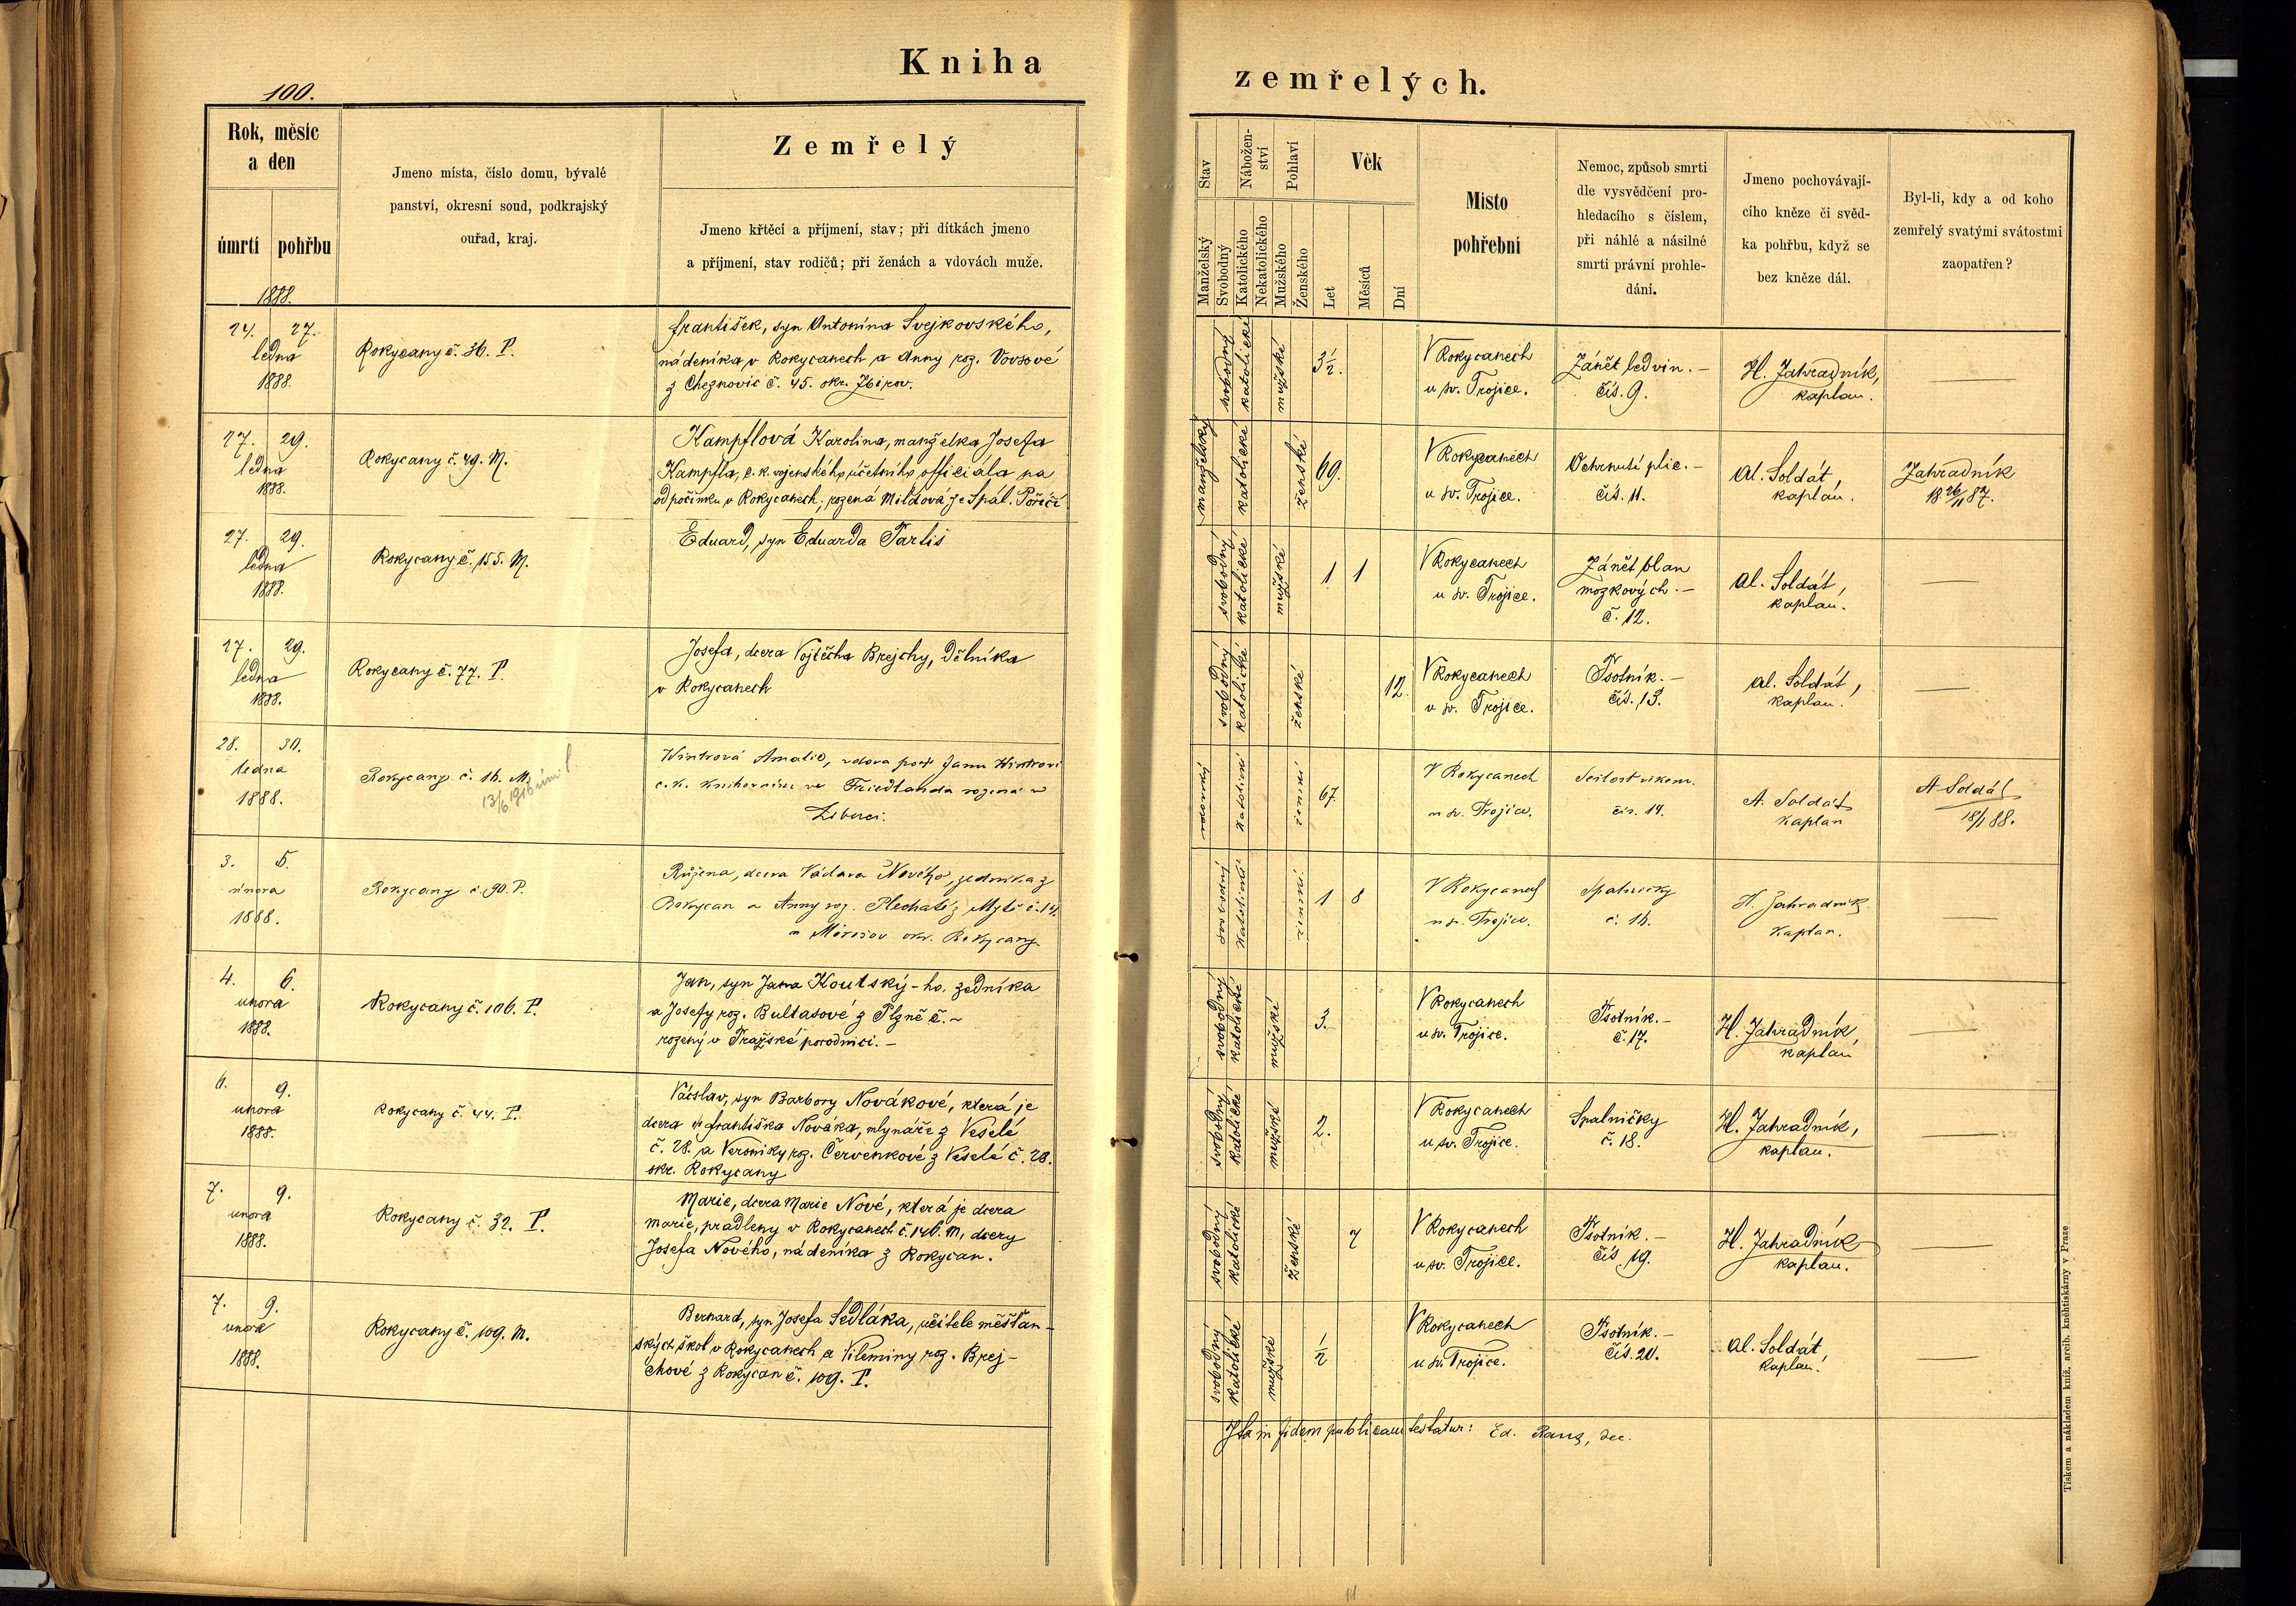 Kniha
zemřelých.
100.
Rok, měsíc
a den
úmrtí
pohřbu
1888.
Jmeno místa, číslo domu, bývalé
panství, okresní soud, podkrajský
ouřad, kraj.
Zemřelý
Jmeno křtěcí a příjmení, stav; při dítkách jmeno
a příjmení, stav rodičů; při ženách a vdovách muže.
Stav
Nábožen-
ství
Pohlaví
Věk
Manželský
Svobodný
Katolického
Nekatolického
Mužského
Ženského
Let
Měsíců
Dní
Místo
pohřební
Nemoc, způsob smrti
dle vysvědčení pro-
hledacího s číslem,
při náhlé a násilné
smrti právní prohle-
dání.
Jmeno pochovávají-
cího kněze či svěd-
ka pohřbu, když se
bez kněze dál.
Byl-li, kdy a od koho
zemřelý svatými svátostmi
zaopatřen?
24. 27.
ledna
1888.
Rokycany č. 36. P.
František, syn Antonína Svejkovského,
nádeníka v Rokycanech a Anny roz. Vovsové
z Cheznovic č. 45. okr. Zbirov.
svobodný
katolické
mužské
3½.
V Rokycanech
u sv. Trojice.
Zánět ledvin. –
čís. 9.
H. Zahradník,
kaplan.
27. 29.
ledna
1888.
Rokycany č. 49. M.
Kampflová Karolina, manželka Josefa
Kampfla, c. k. vojenského účetního officiála na
odpočinku v Rokycanech; rozená Mildová ze Spál. Poříčí
manželský
katolické
ženské
69.
V Rokycanech
u sv. Trojice.
Ochrnutí plic. –
čís. 11.
Al. Soldát,
kaplan.
Zahradník
18 26/11 87.
27. 29.
ledna
1888.
Rokycany č. 155. M.
Eduard, syn Eduarda Partiš
svobodný
katolické
mužské
1 1
V Rokycanech
u sv. Trojice.
Zánět blan
mozkových. –
č. 12.
Al. Soldát,
kaplan.
27. 29.
ledna
1888.
Rokycany č. 77. P.
Josefa, dcera Vojtěcha Brejchy, dělníka
v Rokycanech
svobodný
katolické
ženské
12.
V Rokycanech
u sv. Trojice.
Psotník. –
čís. 13.
Al. Soldát,
kaplan.
28. 30.
ledna
1888.
Rokycany č. 16. M.
13/6 1916
Wintrová Amalie, vdova po Janu Wintrovi
c. k. ve Friedlandu rozená v
Liberci.
katolické
ženské
67.
V Rokycanech
u sv. Trojice.
Sešlost věkem.
čís. 14.
A. Soldát
kaplan
A. Soldát
18/1 88.
3. 5.
února
1888.
Rokycany č. 90. P.
Růžena, dcera Václava Nového, zedníka z
Rokycan a Anny roz. Plechaté z Mýtě č. 14.
u Mirošov okr. Rokycany
svobodný
katolické
ženské
1 8
V Rokycanech
u sv. Trojice.
Spalničky
č. 16.
H. Zahradník
kaplan.
4. 6.
unora
1888.
Rokycany č. 106. P.
Jan, syn Jana Koutský-ho. zedníka
a Josefy roz. Bultasové z Plzně č. –
rozený v Pražské porodnici. –
svobodný
katolické
mužské
3.
V Rokycanech
u sv. Trojice.
Psotník. –
č. 17.
H. Zahradník,
kaplan
6. 9.
unora
1888.
Rokycany č. 44. P.
Václav, syn Barbory Novákové, která je
dcera Františka Nováka, mlynáře z Veselé
č. 28. a Veroniky roz. Červenkové z Veselé č. 28.
okr. Rokycany
svobodný
katolické
mužské
2.
V Rokycanech
u sv. Trojice.
Spalničky
č. 18.
H. Zahradník,
kaplan.
7. 9.
unora
1888.
Rokycany č. 32. P.
Marie, dcera Marie Nové, která je dcera
Marie, pradleny v Rokycanech č. 146. M, dcery
Josefa Nového, nádeníka z Rokycan.
svobodný
katolické
ženské
7
V Rokycanech
u sv. Trojice.
Psotník. –
čís. 19.
H. Zahradník
kaplan.
7. 9.
unora
1888.
Rokycany č. 109. M.
Bernard, syn Josefa Sedláka, učitele měšťan-
ských škol v Rokycanech a Vileminy roz. Brej-
chové z Rokycan č. 109. P.
svobodný
katolické
mužské
½
V Rokycanech
u sv. Trojice.
Psotník. –
čís. 20.
Al. Soldát,
kaplan.
Ita in fidem publicam testatur: Ed. , dec.
Tiskem a nákladem kníž. arcib. kněhtiskárny v Praze